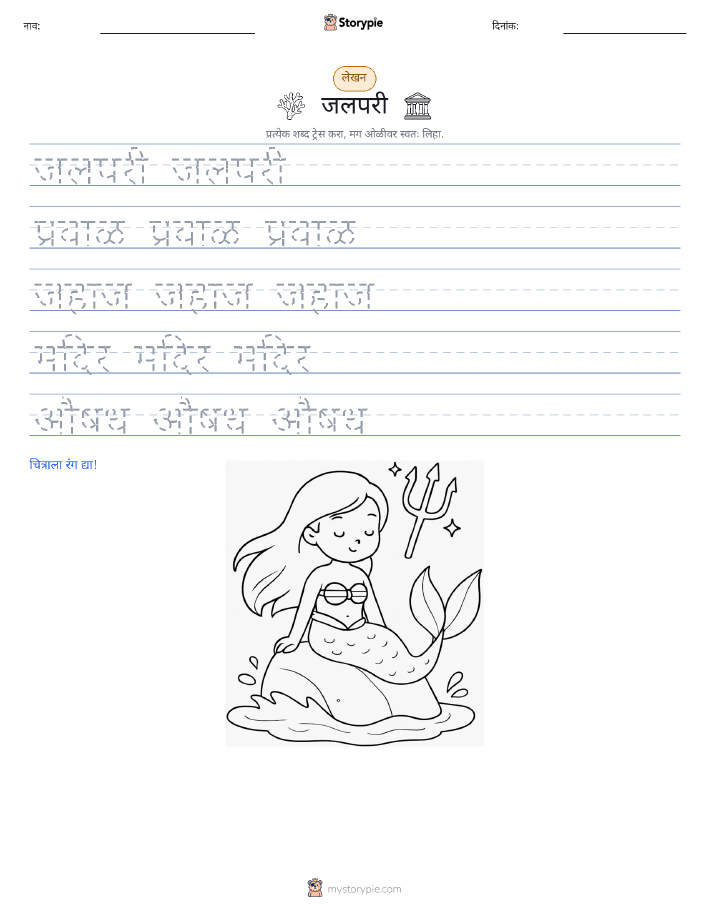 नाव: Storypie दिनांक:
लेखन
जलपरी
प्रत्येक शब्द ट्रेस करा, मग ओळीवर स्वतः लिहा.
जलपरी जलपरी
प्रवाळ प्रवाळ प्रवाळ
जहाज जहाज जहाज
मंदिर मंदिर मंदिर
औषध औषध औषध
चित्राला रंग द्या!
mystorypie.com